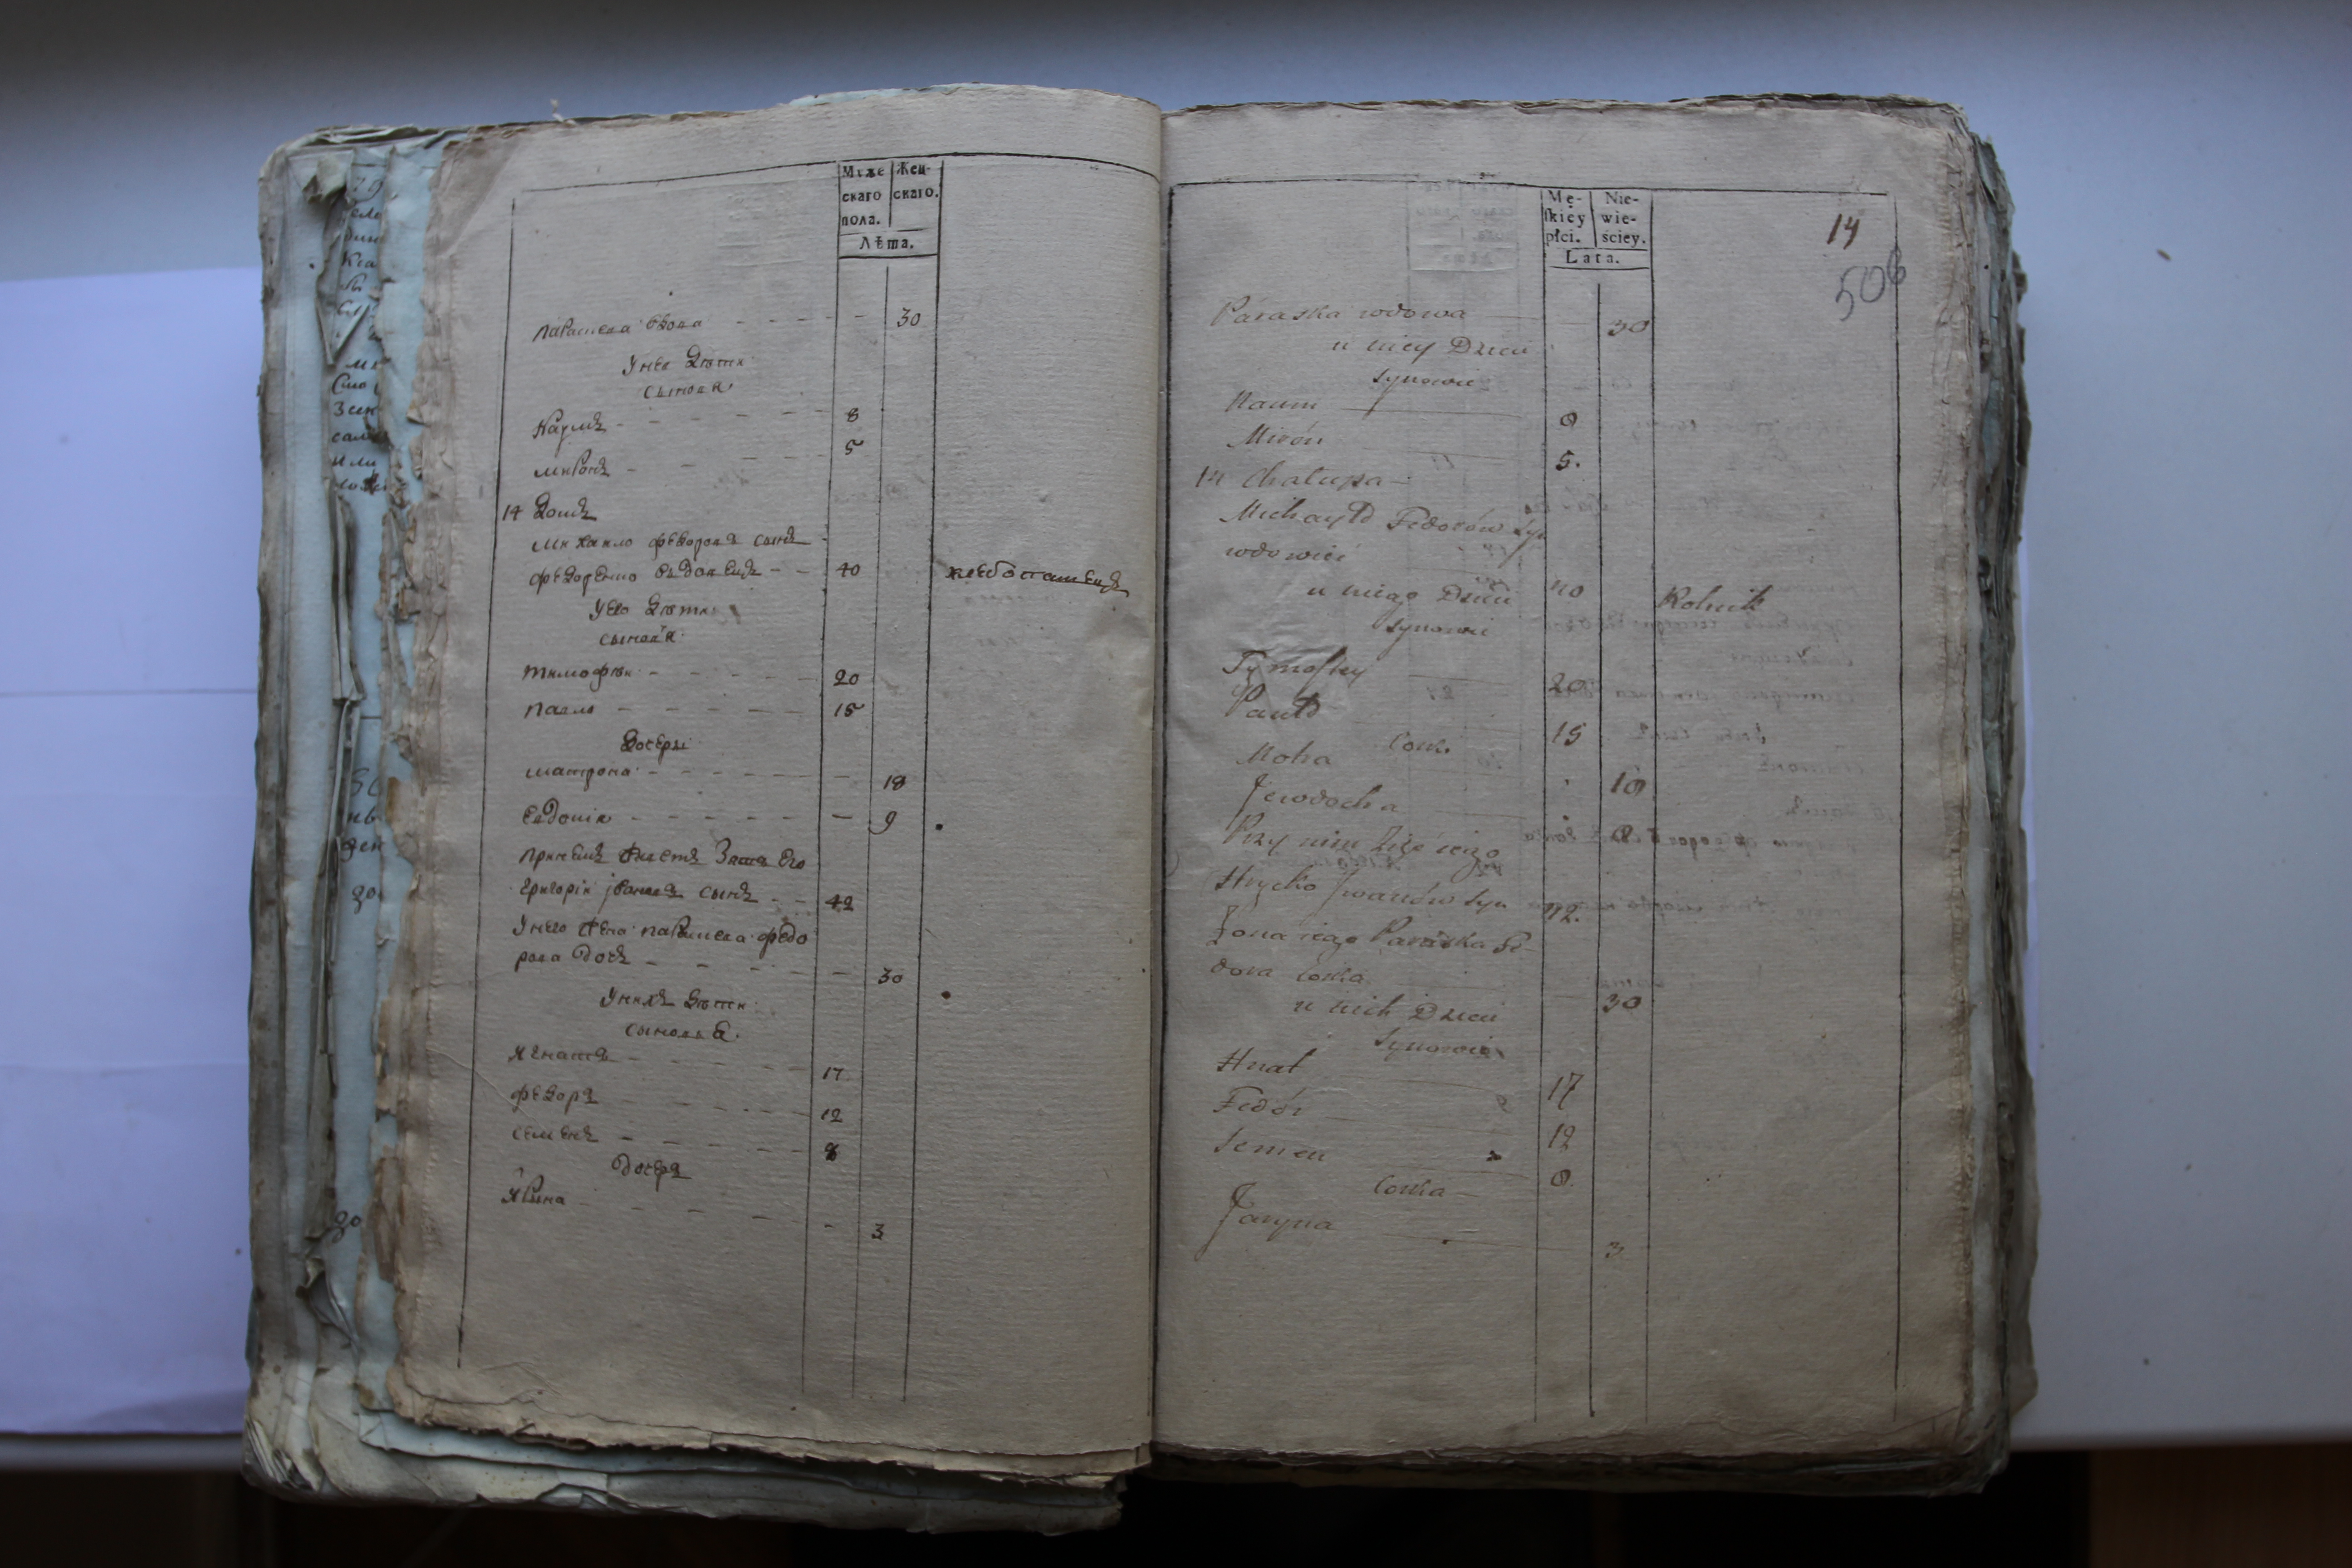 Муже
скаго
пола.
Жен-
скаго.
Лѣта.
параскева вдова 30
У нее дѣти
сыновя
Наумъ 8
миронъ 5
14 домъ
михаило федоровъ сынъ
федоренко вдовецъ 40
у его дѣти
сыновя
тимофѣи 20
павло 15
дочери
матрона 18
евдокія 9
при немъ живетъ зять его
григоріи јвановъ сынъ 42
У него жена параскева федо
рова дочь 30
У нихъ дѣти
сыновья
игнатъ 17
федоръ 12
семенъ 8
дочеръ
ирина 3
Mę-
skiey
płci.
Nie-
wie-
sciey.
Lata.
14
506
Paraska wdowa 30
u niey Dzieci
Synowie
Naum 8
Mirón 5.
14 Chalupa
Michayło Fedorów Syn
wdowiec 40 Rolnik
u niego Dzieci
Synowie
Tymofiey 20
Pawło 15
Cork.
Motra 18
Jewdocha 9
Przy nim Zięć iego
Hryćko Jwanów Syn 42.
Zona iego Paraska Fe-
dora Corka 30
u nich Dzieci
Synowie
Hnat 17
Fedór 12
Semen 8
Corka
Jaryna 3